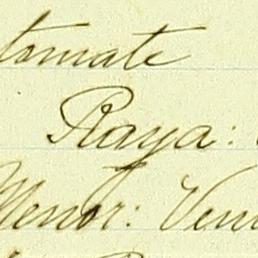 tomate
Raya:
Menor: